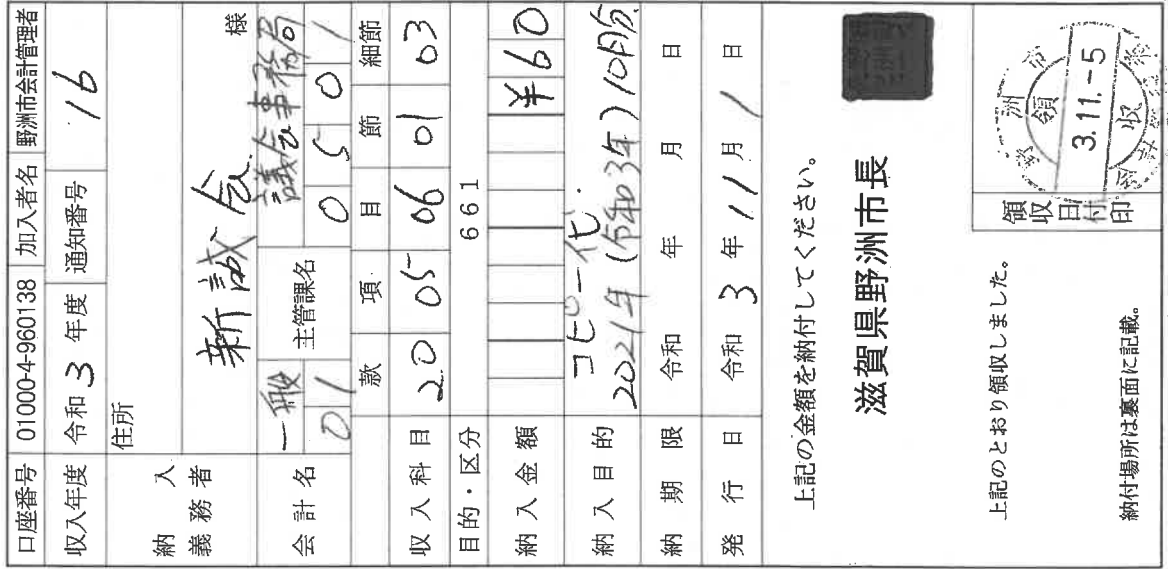 口座番号 01000-4-960138 加入者名 野洲市会計管理者
収入年度 令和 3 年度 通知番号 16
納入義務者 住所
新誠会 様
会計名 一般 主管課名 議会事務局
01 0501
収入科目 款 項 目 節 細節
20 05 06 01 03
目的・区分 661
納入金額 ¥60
納入目的 コピー代
2021年(令和3年)10月分
納期限 令和 年 月 日
発行日 令和 3 年 11 月 1 日
上記の金額を納付してください。
滋賀県野洲市長
上記のとおり領収しました。
領収日付印
領
3.11.-5
収
納付場所は裏面に記載。